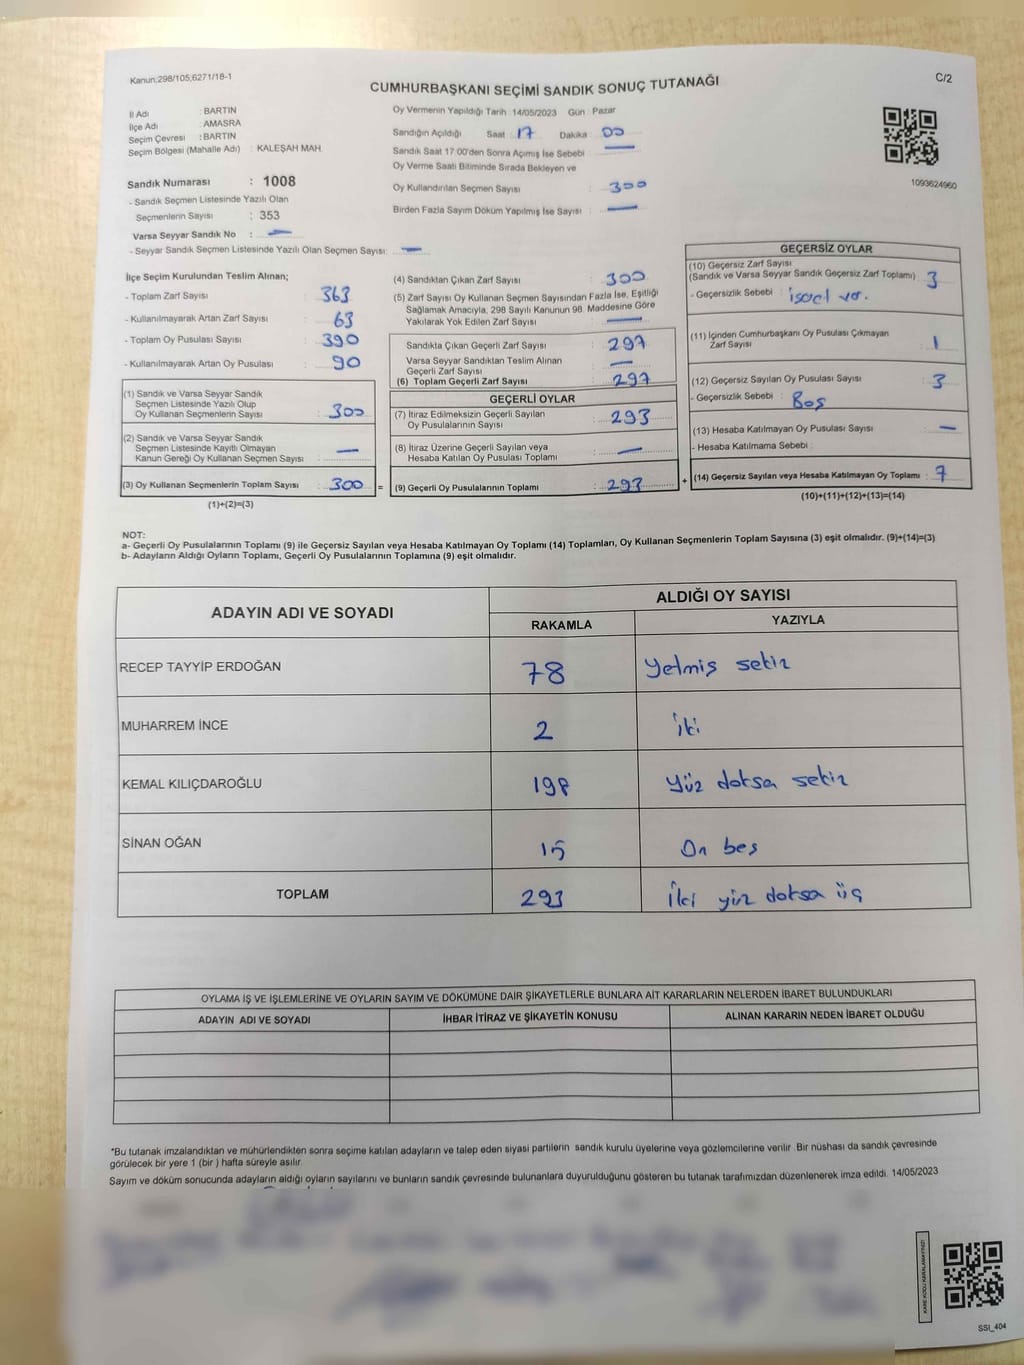 Kanun;298/105;6271/18-1
C/2
CUMHURBAŞKANI SEÇİMİ SANDIK SONUÇ TUTANAĞI
İl Adı : BARTIN
İlçe Adı : AMASRA
Seçim Çevresi : BARTIN
Seçim Bölgesi (Mahalle Adı) : KALEŞAH MAH.
Sandık Numarası : 1008
- Sandık Seçmen Listesinde Yazılı Olan
Seçmenlerin Sayısı : 353
Varsa Seyyar Sandık No : —
- Seyyar Sandık Seçmen Listesinde Yazılı Olan Seçmen Sayısı: —
Oy Vermenin Yapıldığı Tarih :14/05/2023 Gün : Pazar
Sandığın Açıldığı Saat : 17 Dakika : 00
Sandık Saat 17:00'den Sonra Açımış İse Sebebi : —
Oy Verme Saati Bitiminde Sırada Bekleyen ve
Oy Kullandırılan Seçmen Sayısı : 300
Birden Fazla Sayım Döküm Yapılmış İse Sayısı : —
1093624960
İlçe Seçim Kurulundan Teslim Alınan;
- Toplam Zarf Sayısı : 363
- Kullanılmayarak Artan Zarf Sayısı : 63
- Toplam Oy Pusulası Sayısı : 390
- Kullanılmayarak Artan Oy Pusulası : 90
(1) Sandık ve Varsa Seyyar Sandık
Seçmen Listesinde Yazılı Olup
Oy Kullanan Seçmenlerin Sayısı : 300
(2) Sandık ve Varsa Seyyar Sandık
Seçmen Listesinde Kayıtlı Olmayan
Kanun Gereği Oy Kullanan Seçmen Sayısı : —
(3) Oy Kullanan Seçmenlerin Toplam Sayısı : 300 =
(1)+(2)=(3)
(4) Sandıktan Çıkan Zarf Sayısı : 300
(5) Zarf Sayısı Oy Kullanan Seçmen Sayısından Fazla İse, Eşitliği
Sağlamak Amacıyla, 298 Sayılı Kanunun 98. Maddesine Göre
Yakılarak Yok Edilen Zarf Sayısı : —
Sandıkta Çıkan Geçerli Zarf Sayısı : 297
Varsa Seyyar Sandıktan Teslim Alınan
Geçerli Zarf Sayısı : —
(6) Toplam Geçerli Zarf Sayısı : 297
GEÇERLİ OYLAR
(7) İtiraz Edilmeksizin Geçerli Sayılan
Oy Pusulalarının Sayısı : 293
(8) İtiraz Üzerine Geçerli Sayılan veya
Hesaba Katılan Oy Pusulası Toplamı : —
(9) Geçerli Oy Pusulalarının Toplamı : 293 +
GEÇERSİZ OYLAR
(10) Geçersiz Zarf Sayısı
(Sandık ve Varsa Seyyar Sandık Geçersiz Zarf Toplamı) : 3
- Geçersizlik Sebebi : işaret var.
(11) İçinden Cumhurbaşkanı Oy Pusulası Çıkmayan
Zarf Sayısı : 1
(12) Geçersiz Sayılan Oy Pusulası Sayısı : 3
- Geçersizlik Sebebi : Boş
(13) Hesaba Katılmayan Oy Pusulası Sayısı : —
- Hesaba Katılmama Sebebi :
(14) Geçersiz Sayılan veya Hesaba Katılmayan Oy Toplamı : 7
(10)+(11)+(12)+(13)=(14)
NOT:
a- Geçerli Oy Pusulalarının Toplamı (9) ile Geçersiz Sayılan veya Hesaba Katılmayan Oy Toplamı (14) Toplamları, Oy Kullanan Seçmenlerin Toplam Sayısına (3) eşit olmalıdır. (9)+(14)=(3)
b- Adayların Aldığı Oyların Toplamı, Geçerli Oy Pusulalarının Toplamına (9) eşit olmalıdır.
ADAYIN ADI VE SOYADI
ALDIĞI OY SAYISI
RAKAMLA YAZIYLA
RECEP TAYYİP ERDOĞAN 78 Yetmiş sekiz
MUHARREM İNCE 2 İki
KEMAL KILIÇDAROĞLU 198 Yüz doksa sekiz
SİNAN OĞAN 15 On beş
TOPLAM 293 İki yüz doksa üç
OYLAMA İŞ VE İŞLEMLERİNE VE OYLARIN SAYIM VE DÖKÜMÜNE DAİR ŞİKAYETLERLE BUNLARA AİT KARARLARIN NELERDEN İBARET BULUNDUKLARI
ADAYIN ADI VE SOYADI İHBAR İTİRAZ VE ŞİKAYETİN KONUSU ALINAN KARARIN NEDEN İBARET OLDUĞU
*Bu tutanak imzalandıktan ve mühürlendikten sonra seçime katılan adayların ve talep eden siyasi partilerin sandık kurulu üyelerine veya gözlemcilerine verilir .Bir nüshası da sandık çevresinde
görülecek bir yere 1 (bir ) hafta süreyle asılır.
Sayım ve döküm sonucunda adayların aldığı oyların sayılarını ve bunların sandık çevresinde bulunanlara duyurulduğunu gösteren bu tutanak tarafımızdan düzenlenerek imza edildi. 14/05/2023
KARE KODU KARALAMAYINIZ!
SSI_404